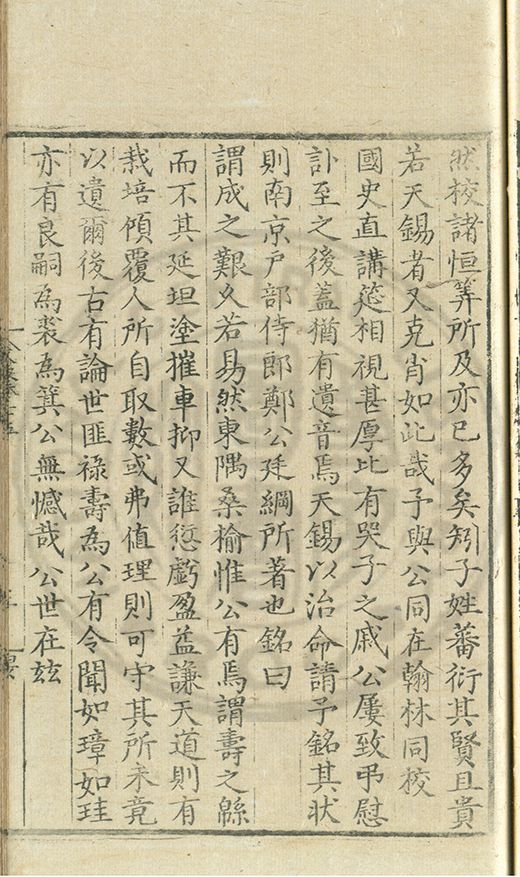 然校諸恒筭所及亦已多矣矧子姓蕃衍其賢且貴
若天錫者又克肖如此哉予與公同在翰林同校
國史直講筵相視甚厚比有哭子之戚公屢致弔慰
訃至之後蓋猶有遺音焉天錫以治命請予銘其狀
則南京戶部侍郎鄭公廷綱所著也銘曰
謂成之艱久若易然東隅桑榆惟公有焉謂壽之緜
而不其延坦塗摧車抑又誰愆虧盈益謙天道則有
栽培傾覆人所自取數或弗值理則可守其所未竟
以遺爾後古有論世匪祿壽為公有令聞如璋如珪
亦有良嗣為裘為箕公無憾哉公世在茲